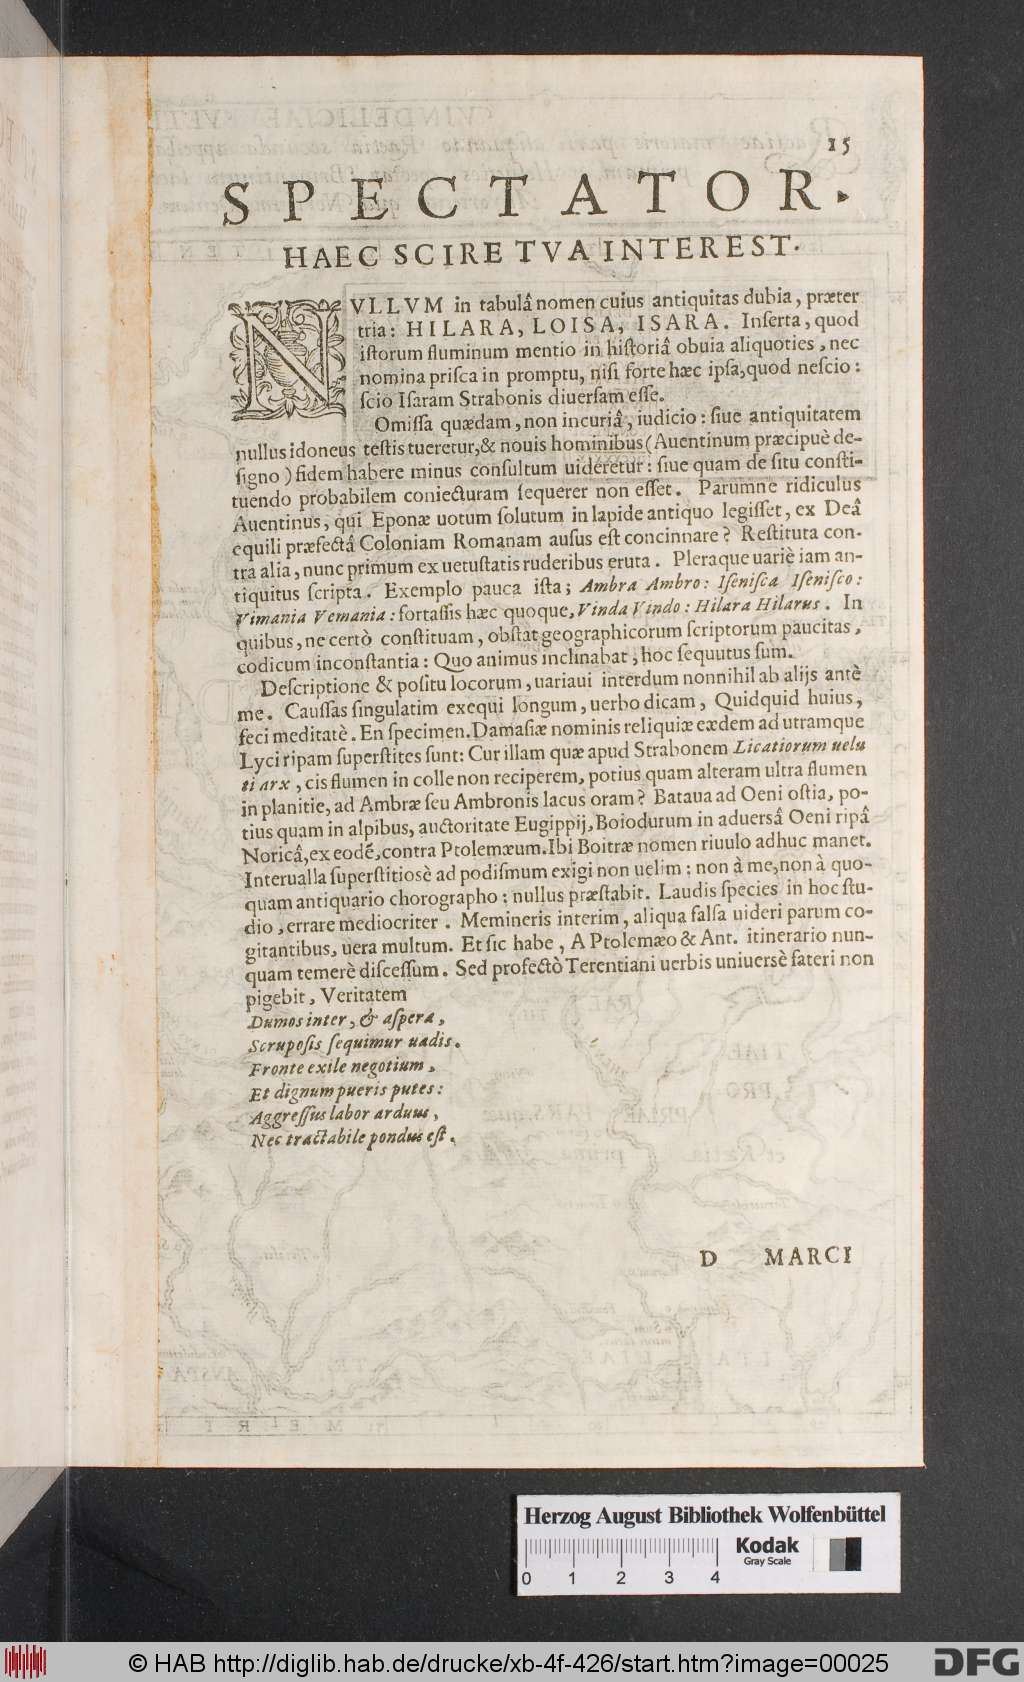 15
SPECTATOR.
HAEC SCIRE TVA INTEREST.
NVLLVM in tabulâ nomen cuius antiquitas dubia, præter
tria: HILARA, LOISA, ISARA. Inserta, quod
istorum fluminum mentio in historiâ obuia aliquoties, nec
nomina prisca in promptu, nisi forte hæc ipsa, quod nescio:
scio Isaram Strabonis diuersam esse.
Omissa quædam, non incuriâ, iudicio: siue antiquitatem
nullus idoneus testis tueretur, & nouis hominibus (Auentinum præcipuè de-
signo) fidem habere minus consultum uideretur: siue quam de situ consti-
tuendo probabilem coniecturam sequerer non esset. Parumne ridiculus
Auentinus, qui Eponæ uotum solutum in lapide antiquo legisset, ex Deâ
equili præfectâ Coloniam Romanam ausus est concinnare? Restituta con-
tra alia, nunc primum ex uetustatis ruderibus eruta. Pleraque uariè iam an-
tiquitus scripta. Exemplo pauca ista; Ambra Ambro: Isenisca Isenisco:
Vimania Vemania: fortassis hæc quoque, Vinda Vindo: Hilara Hilarus. In
quibus, ne certò constituam, obstat geographicorum scriptorum paucitas,
codicum inconstantia: Quo animus inclinabat, hoc sequutus sum.
Descriptione & positu locorum, uariaui interdum nonnihil ab alijs antè
me. Caussas singulatim exequi longum, uerbo dicam, Quidquid huius,
feci meditatè. En specimen. Damasiæ nominis reliquiæ eædem ad utramque
Lyci ripam superstites sunt: Cur illam quæ apud Strabonem Licatiorum uelu
ti arx, cis flumen in colle non reciperem, potius quam alteram ultra flumen
in planitie, ad Ambræ seu Ambronis lacus oram? Bataua ad Oeni ostia, po-
tius quam in alpibus, auctoritate Eugippij, Boiodurum in aduersâ Oeni ripâ
Noricâ, ex eodē, contra Ptolemæum. Ibi Boitræ nomen riuulo adhuc manet.
Interualla superstitiosè ad podismum exigi non uelim: non à me, non à quo-
quam antiquario chorographo: nullus præstabit. Laudis species in hoc stu-
dio, errare mediocriter. Memineris interim, aliqua falsa uideri parum co-
gitantibus, uera multum. Et sic habe, A Ptolemæo & Ant. itinerario nun-
quam temerè discessum. Sed profectò Terentiani uerbis uniuersè fateri non
pigebit, Veritatem
Dumos inter, & aspera,
Scruposis sequimur uadis.
Fronte exile negotium,
Et dignum pueris putes:
Aggressus labor arduus,
Nec tractabile pondus est.
D MARCI
Herzog August Bibliothek Wolfenbüttel
Kodak
Gray Scale
0 1 2 3 4
© HAB http://diglib.hab.de/drucke/xb-4f-426/start.htm?image=00025
DFG